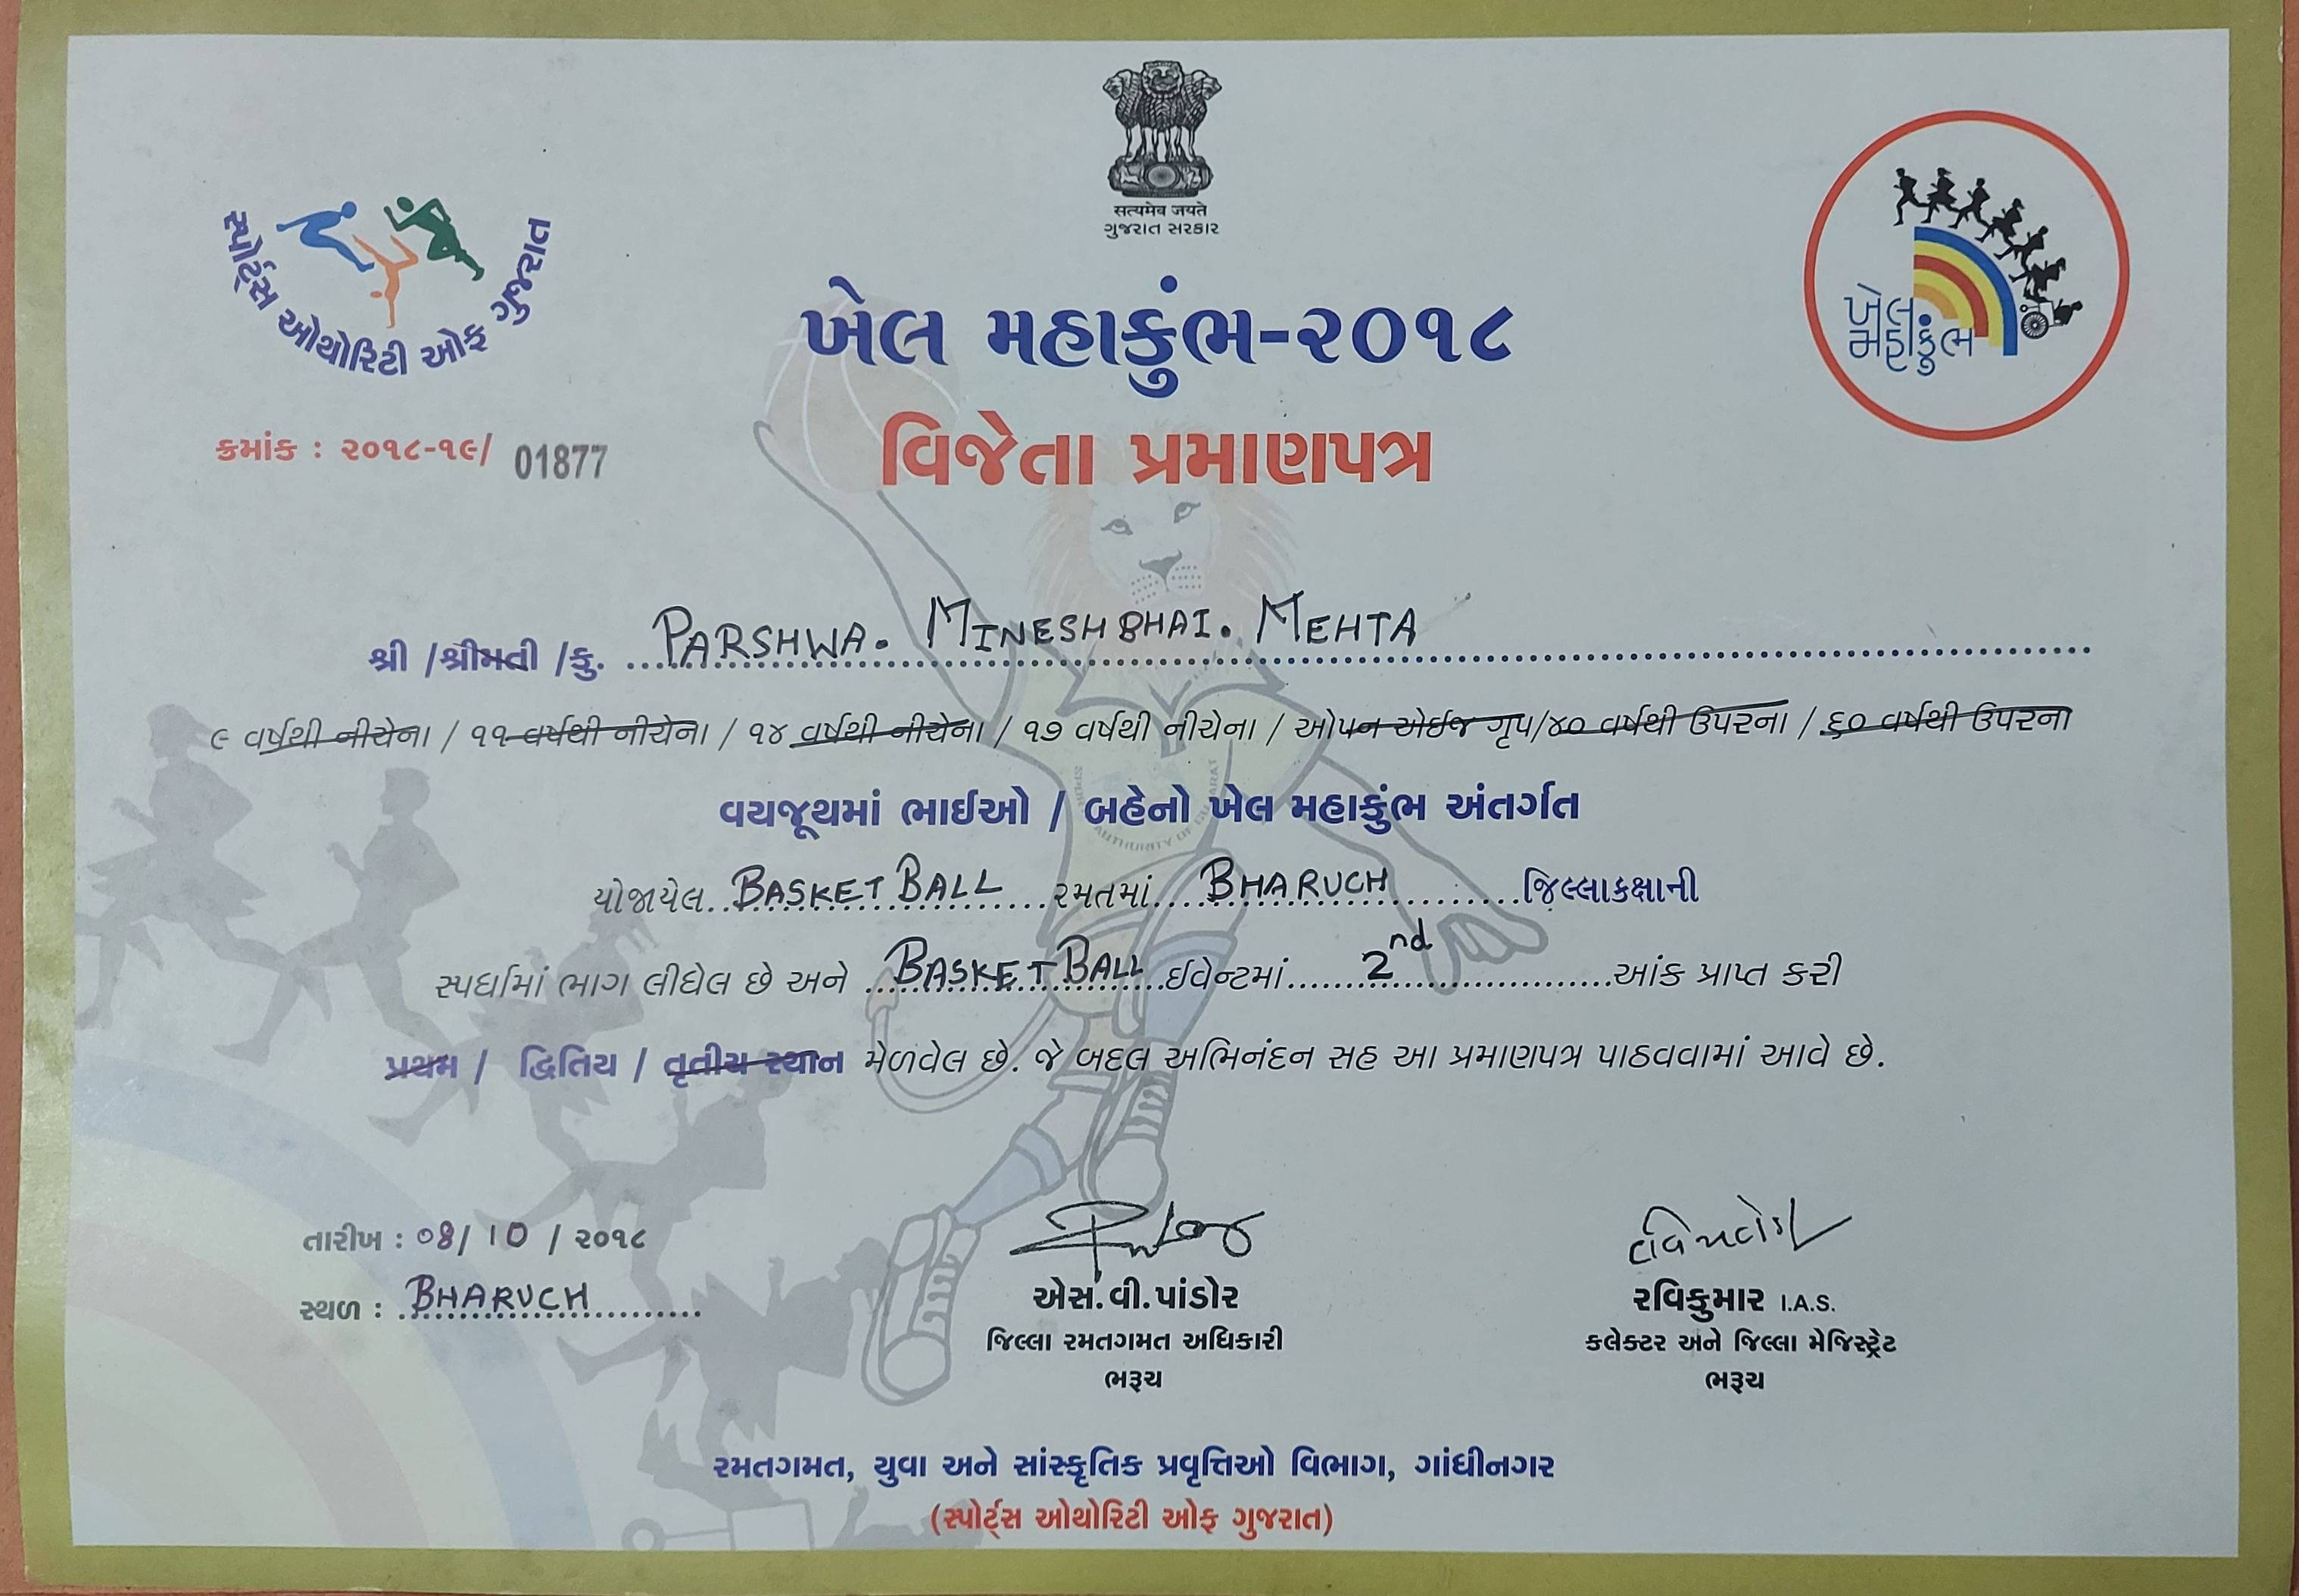 सत्यमेव जयते
ગુજરાત સરકાર
સ્પોર્ટ્સ ઓથોરિટી ઓફ ગુજરાત
ખેલ
મહાકુંભ
ખેલ મહાકુંભ-૨૦૧૮
વિજેતા પ્રમાણપત્ર
ક્રમાંક : ૨૦૧૮-૧૯/ 01877
શ્રી /શ્રીમતી /કુ. PARSHWA. MINESHBHAI. MEHTA
૯ વર્ષથી નીચેના / ૧૧ વર્ષથી નીચેના / ૧૪ વર્ષથી નીચેના / ૧૭ વર્ષથી નીચેના / ઓપન એઈજ ગૃપ/૪૦ વર્ષથી ઉપરના / ૬૦ વર્ષથી ઉપરના
વયજૂથમાં ભાઈઓ / બહેનો ખેલ મહાકુંભ અંતર્ગત
યોજાયેલ BASKET BALL રમતમાં BHARUCH જિલ્લાકક્ષાની
સ્પર્ધામાં ભાગ લીધેલ છે અને BASKET BALL ઈવેન્ટમાં 2nd આંક પ્રાપ્ત કરી
પ્રથમ / દ્વિતિય / તૃતીય સ્થાન મેળવેલ છે. જે બદલ અભિનંદન સહ આ પ્રમાણપત્ર પાઠવવામાં આવે છે.
AUTHORITY OF GUJARAT
તારીખ : ૦8/ 10 / ૨૦૧૮
સ્થળ : BHARUCH
એસ.વી.પાંડોર
જિલ્લા રમતગમત અધિકારી
ભરૂચ
રવિકુમાર I.A.S.
કલેક્ટર અને જિલ્લા મેજિસ્ટ્રેટ
ભરૂચ
રમતગમત, યુવા અને સાંસ્કૃતિક પ્રવૃત્તિઓ વિભાગ, ગાંધીનગર
(સ્પોર્ટ્સ ઓથોરિટી ઓફ ગુજરાત)